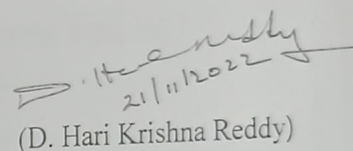 D. Hareddy
21/11/2022
(D. Hari Krishna Reddy)